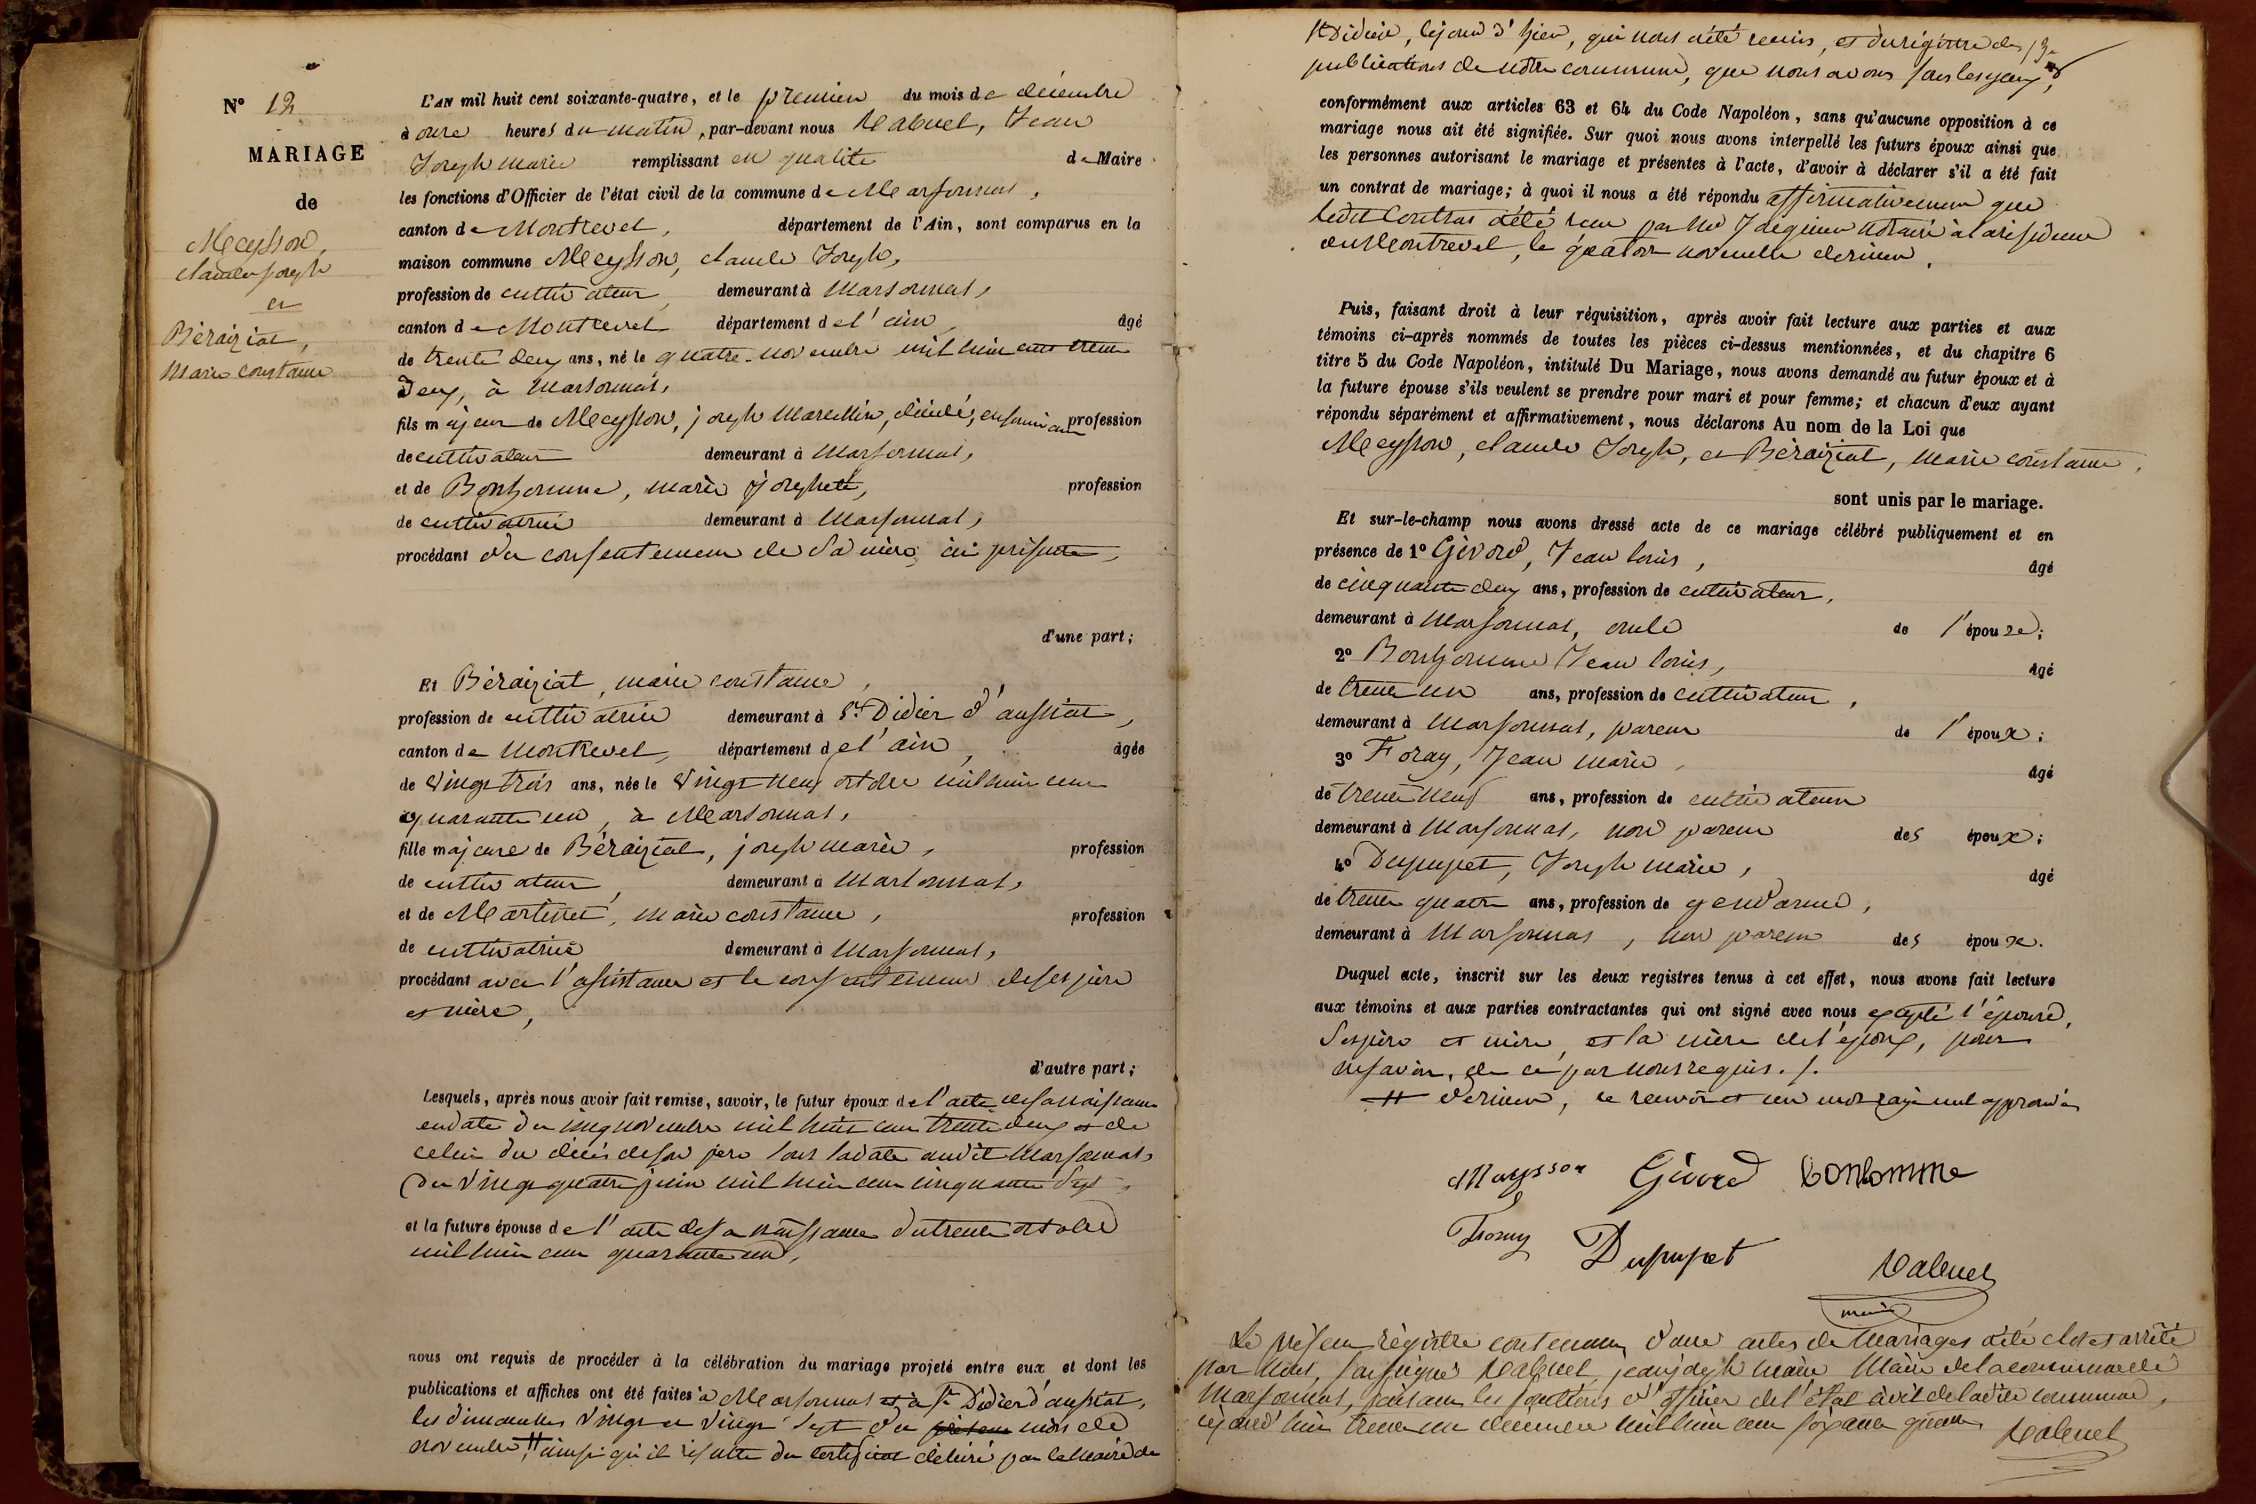 N° 12
MARIAGE
de
Meysson,
claude joseph
et
Béraiziat,
Marie constance
L'AN mil huit cent soixante-quatre, et le premier du mois de décembre
à onze heures du matin, par-devant nous Rabuel, Jean
Joseph marie remplissant en qualité de Maire
les fonctions d'Officier de l'état civil de la commune de Marsonnas,
canton de Montrevel, département de l'Ain, sont comparus en la
maison commune Meysson, claude Joseph,
profession de cultivateur, demeurant à Marsonnas,
canton de Montrevel département de l'ain, âgé
de trente deux ans, né le quatre novembre mil huit cent trente
Deux, à Marsonnas,
fils majeur de Meysson, joseph Marcellin, décédé, en son vivant profession
de cultivateur demeurant à Marsonnas,
et de Bonhomme, marie josephte, profession
de cultivatrice demeurant à Marsonnas,
procédant du consentement de sa mère, ici présente,
d'une part;
Et Béraiziat, marie constance,
profession de cultivatrice demeurant à St Didier d'aussiat,
canton de Montrevel, département de l'ain, âgée
de vingt trois ans, née le vingt neuf octobre mil huit cent
quarante un, à Marsonnas,
fille majeure de Béraiziat, joseph marie, profession
de cultivateur, demeurant à Marsonnas,
et de Martinet, marie constance, profession
de cultivatrice demeurant à Marsonnas,
procédant avec l'assistance et le consentement de ses père
et mère,
d'autre part;
Lesquels, après nous avoir fait remise, savoir, le futur époux de l'acte de sa naissance
en date du cinq novembre mil huit cent trente deux et de
celui du décès de son père sous la date audit Marsonnas,
du vingt quatre juin mil huit cent cinquante sept,
et la future épouse de l'acte de sa naissance du trente octobre
mil huit cent quarante un,
nous ont requis de procéder à la célébration du mariage projeté entre eux et dont les
publications et affiches ont été faites à Marsonnas et à St Didier d'aussiat,
les dimanches vingt et vingt sept du présent mois de
novembre, # ainsi qu'il résulte du certificat délivré par le Maire de
St Didier, le jour d'hier, qui nous a été remis, et du registre des
publications de notre commune, que nous avons sous les yeux,
conformément aux articles 63 et 64 du Code Napoléon, sans qu'aucune opposition à ce
mariage nous ait été signifiée. Sur quoi nous avons interpellé les futurs époux ainsi que
les personnes autorisant le mariage et présentes à l'acte, d'avoir à déclarer s'il a été fait
un contrat de mariage; à quoi il nous a été répondu affirmativement que
ledit Contrat a été reçu par Me notaire à la résidence
de Montrevel, le quatorze novembre dernier,
Puis, faisant droit à leur réquisition, après avoir fait lecture aux parties et aux
témoins ci-après nommés de toutes les pièces ci-dessus mentionnées, et du chapitre 6
titre 5 du Code Napoléon, intitulé Du Mariage, nous avons demandé au futur époux et à
la future épouse s'ils veulent se prendre pour mari et pour femme; et chacun d'eux ayant
répondu séparément et affirmativement, nous déclarons Au nom de la Loi que
Meysson, claude Joseph, et Béraiziat, marie constance,
sont unis par le mariage.
Et sur-le-champ nous avons dressé acte de ce mariage célébré publiquement et en
présence de 1° Givord, Jean louis, âgé
de cinquante deux ans, profession de cultivateur,
demeurant à Marsonnas, oncle de l'épouse;
2° Bonhomme Jean louis, âgé
de trente un ans, profession de cultivateur,
demeurant à Marsonnas, parent de l'époux;
3° Foray, Jean marie, âgé
de trente neuf ans, profession de cultivateur
demeurant à Marsonnas, non parent des époux;
4° Dupupet, Joseph marie, âgé
de trente quatre ans, profession de gendarme,
demeurant à Marsonnas, non parent des époux.
Duquel acte, inscrit sur les deux registres tenus à cet effet, nous avons fait lecture
aux témoins et aux parties contractantes qui ont signé avec nous excepté l'épouse,
ses père et mère, et la mère de l'époux, pour
ne savoir, de ce par nous requis. /.
# dernier, ce renvoi et un mot rayé nul approuvés
Meysson Givord Bonhomme
Foray Dupupet
Rabuel
maire
Le présent régistre contenant douze actes de Mariages a été clos et arrêté
par Nous, soussigné Rabuel, jean joseph marie Maire de la commune de
Marsonnas, faisant les fonctions d'officier de l'état civil de ladite commune,
cejourd'hui trente un décembre mil huit cent soixante quatre
Rabuel